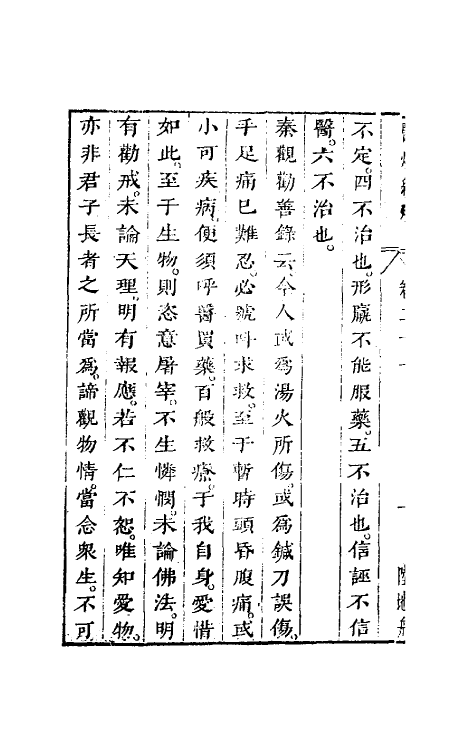 不定。四不治也。形羸不能服藥。五不治也。信誣不信
醫。六不治也。
秦觀勸善錄云。令人或爲湯火所傷。或爲鍼刀誤傷。
手足痛已難忍。必號呌求救。至于暫時頭昏腹痛。或
小可疾病。便須呼醫買藥。百般救療。于我自身。愛惜
如此。至于生物。則恣意屠宰。不生憐憫。未論佛法。明
有勸戒。未論天理。明有報應。若不仁不恕。唯知愛物。
亦非君子長者之所當爲。諦觀物情。當念衆生。不可